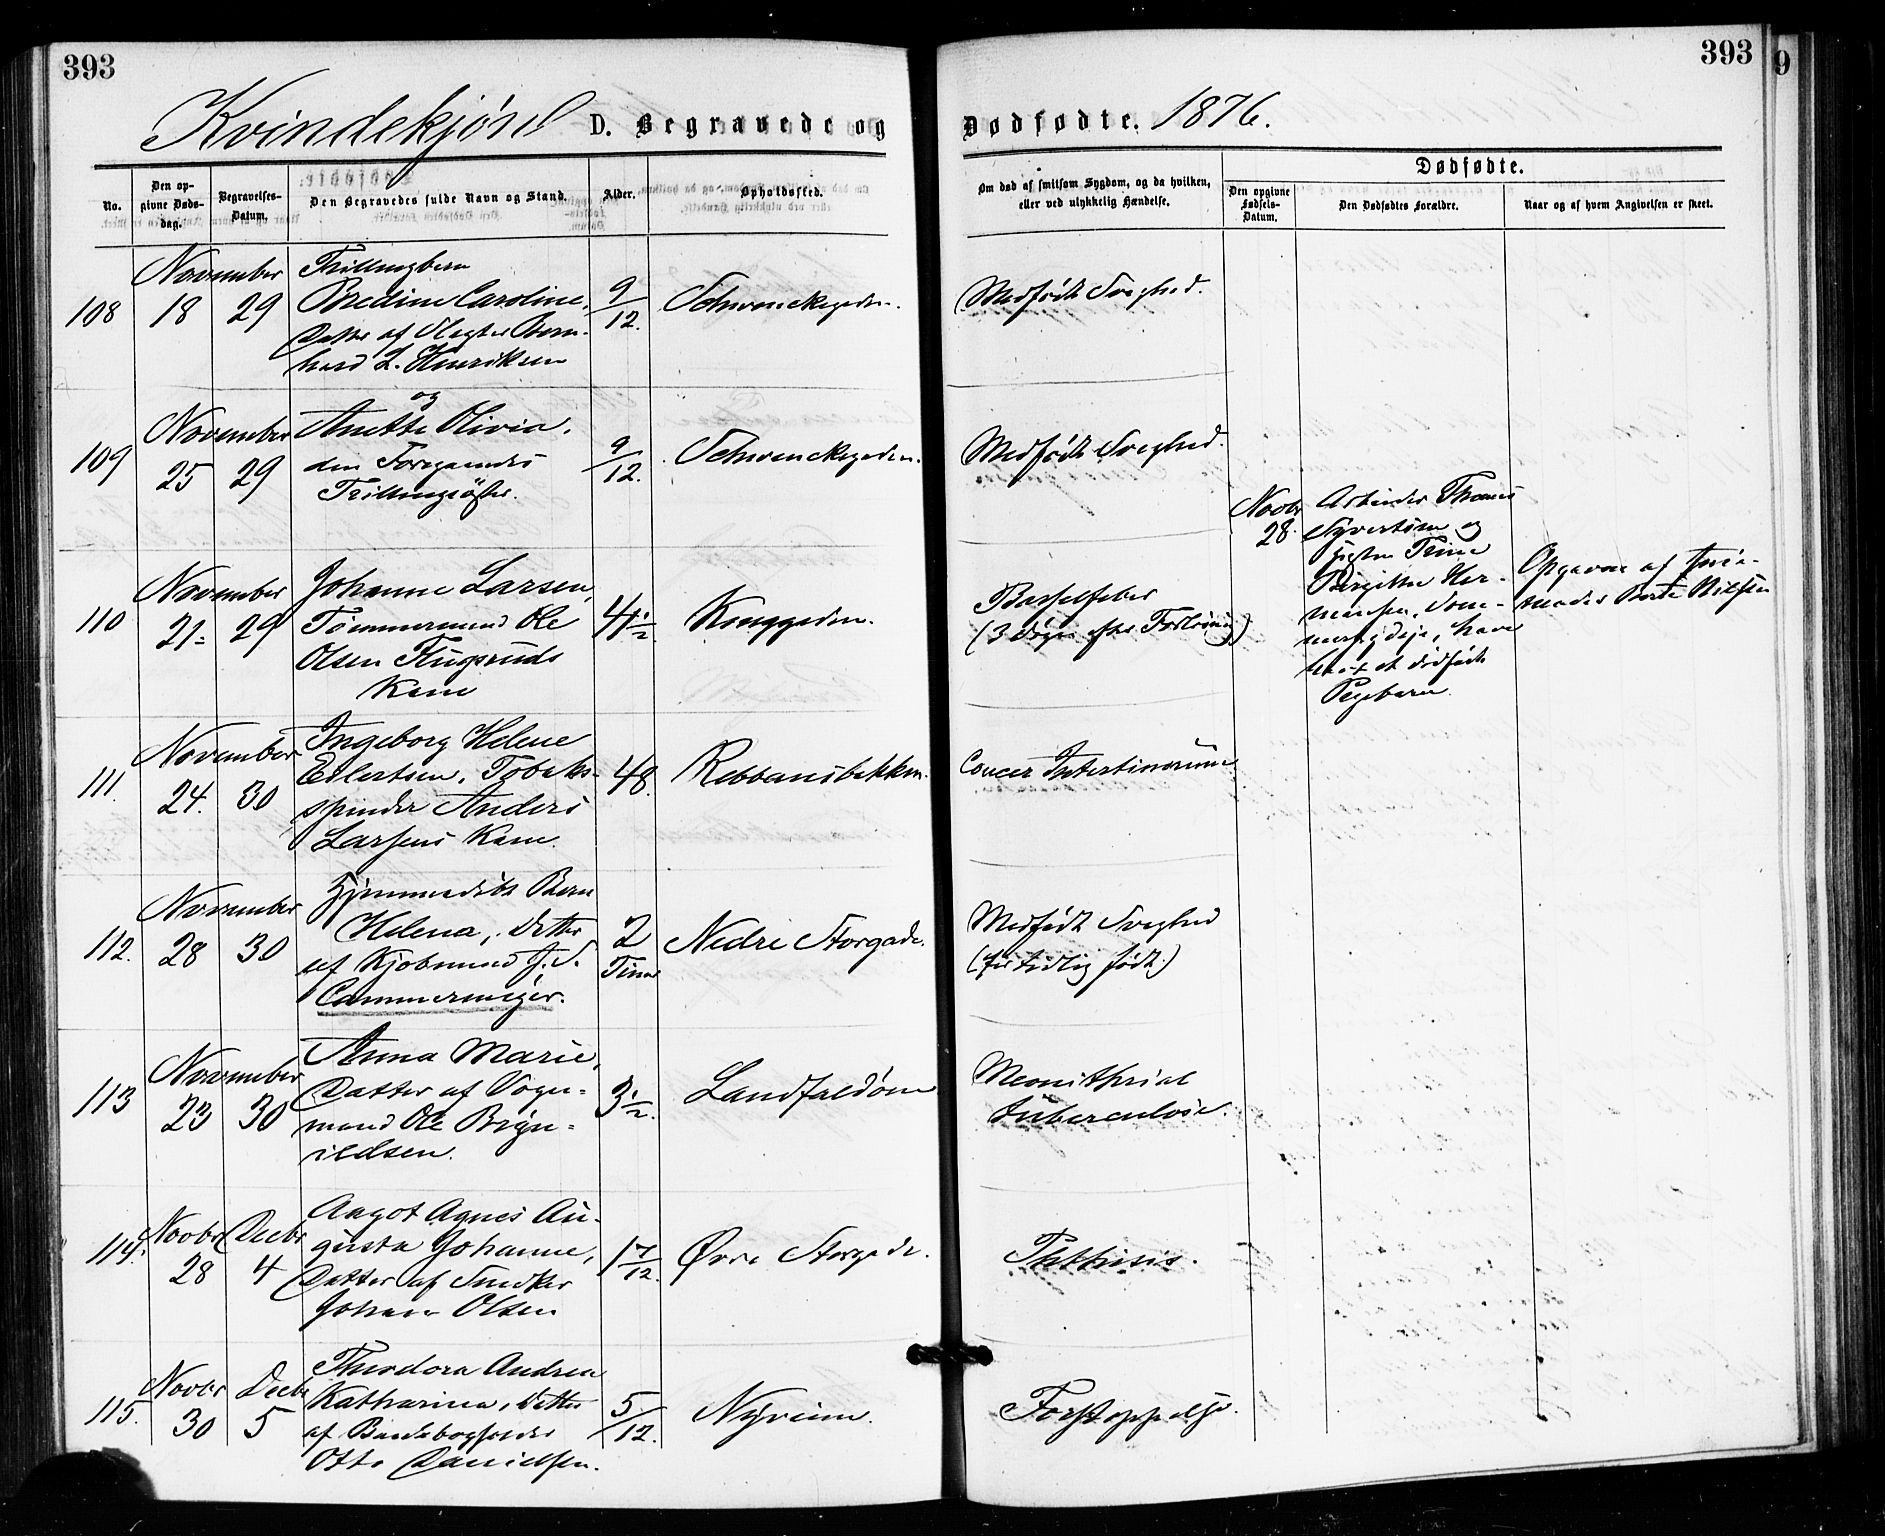 393
Kvindekjøn D. Begravede og
No.
Den opgivne Døds-dag.
Begravelses-Datum.
Den Begravedes fulde Navn og Stand.
Alder.
Opholdssted.
108
November
18
29
Trillingbørn
Bredine Caroline,
Datter af Slagter Bern-
hard L. Henriksen
9/12.
Schwenckegaden.
109
November
25
29
og
Anette Olivia,
den Foregaaendes
Trillingsøster.
9/12.
Schwenckegaden.
110
November
21.
29
Johanne Larsen,
Tømmermand Ole
Olsen Flugsruds
Kone
41½
Konggaden.
111.
November
24.
30
Ingeborg Helene
Eilertsen, Tobaks-
spinder Anders
Larsens Kone.
48.
Rebbansbakken.
112.
November
28
30
Hjemmedøbt Barn
Helena, Datter
af Kjøbmand J. S.
Cammermeyer.
2
Timer
Nedre Storgade.
113
November
23
30
Anna Marie,
Datter af Vogn-
mand Ole Bryn-
ildsen.
3½.
Landfaldøen
114.
Novbr
28
Decbr
4
Aagot Agnes Au-
gusta Johanne,
Datter af Snedker
Johan Olsen
1 7/12.
Øvre Storgade.
115.
Novbr
30
Decbr
5
Theodora Andrea
Katharina, Datter
af
Otto Danielsen.
5/12.
Nyveien.
393
9
Dødfødte. 1876.
Om død af smitsom Sygdom, og da hvilken,
eller ved ulykkelig Hændelse.
Dødfødte.
Den opgivne Fødsels-Datum.
Den Dødfødtes Forældre.
Naar og af hvem Angivelsen er skeet.
Medfødt Svaghed.
Medfødt Svaghed.
Barselfeber
(3 Døgn efter Forløsning)
Novbr
28.
Arbeider Thomas
Syvertsen og
Hustru Trine
Birgitte Her-
mansen,
have
havt et dødfødt
Pigebarn.
Opgaven af Jorde-
moder Berte Nilsen
Cancer Intestinorum
Medfødt Svaghed
(for tidlig født.)
tuberculose.
Phthisis.
Forstoppelse.